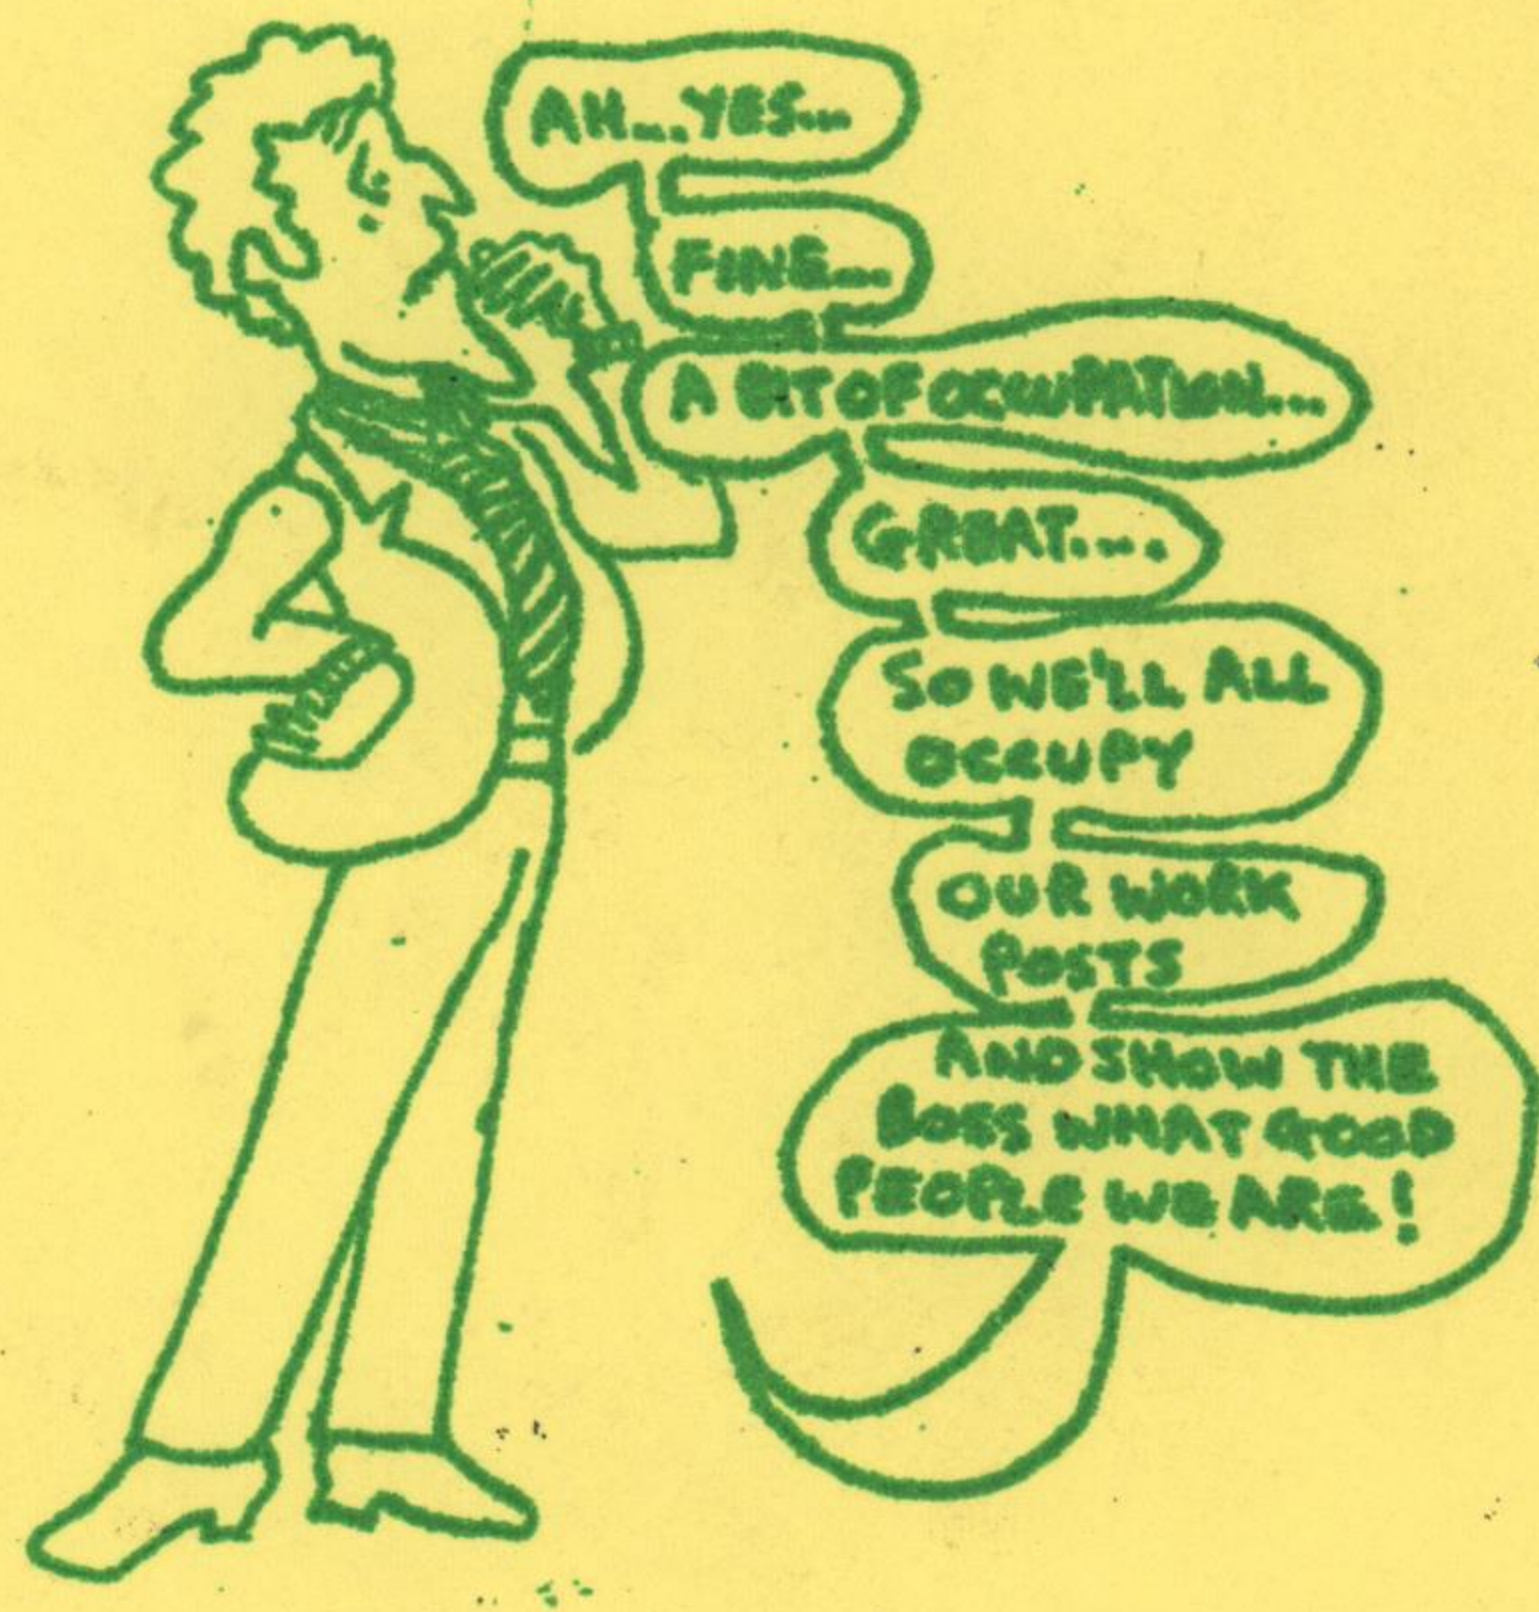 AH... YES...
FINE...
A BIT OF OCCUPATION...
GREAT....
SO WE'LL ALL
OCCUPY
OUR WORK
POSTS
AND SHOW THE
BOSS WHAT GOOD
PEOPLE WE ARE!